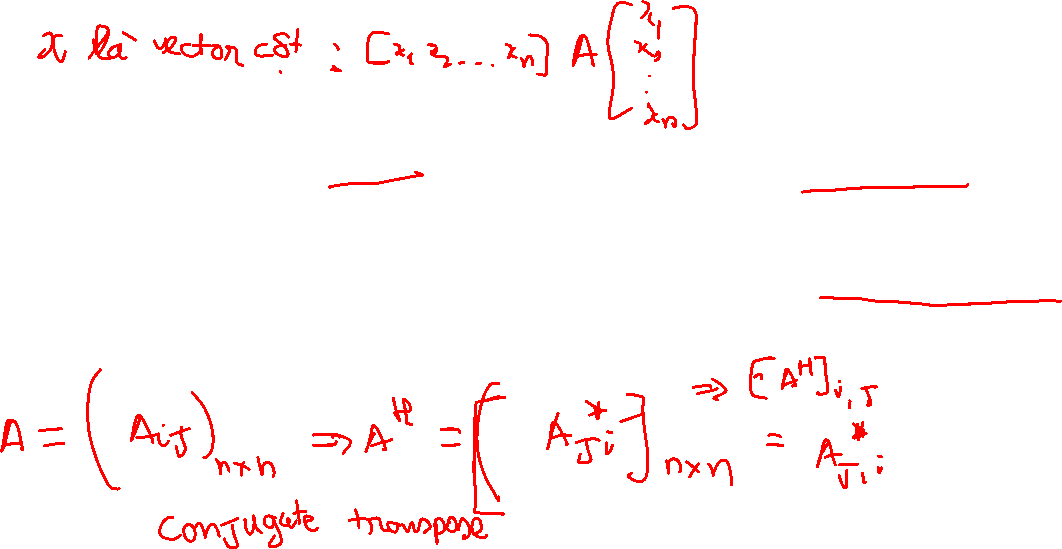 x là vector cột : [x₁ x₂ ... xₙ] A [x₁ x₂ . . xₙ]
A = (A_{ij})_{n×n} ⇒ A^H = [A*_{ji}]_{n×n} ⇒ [A^H]_{i,j} = A*_{j,i}
conjugate transpose